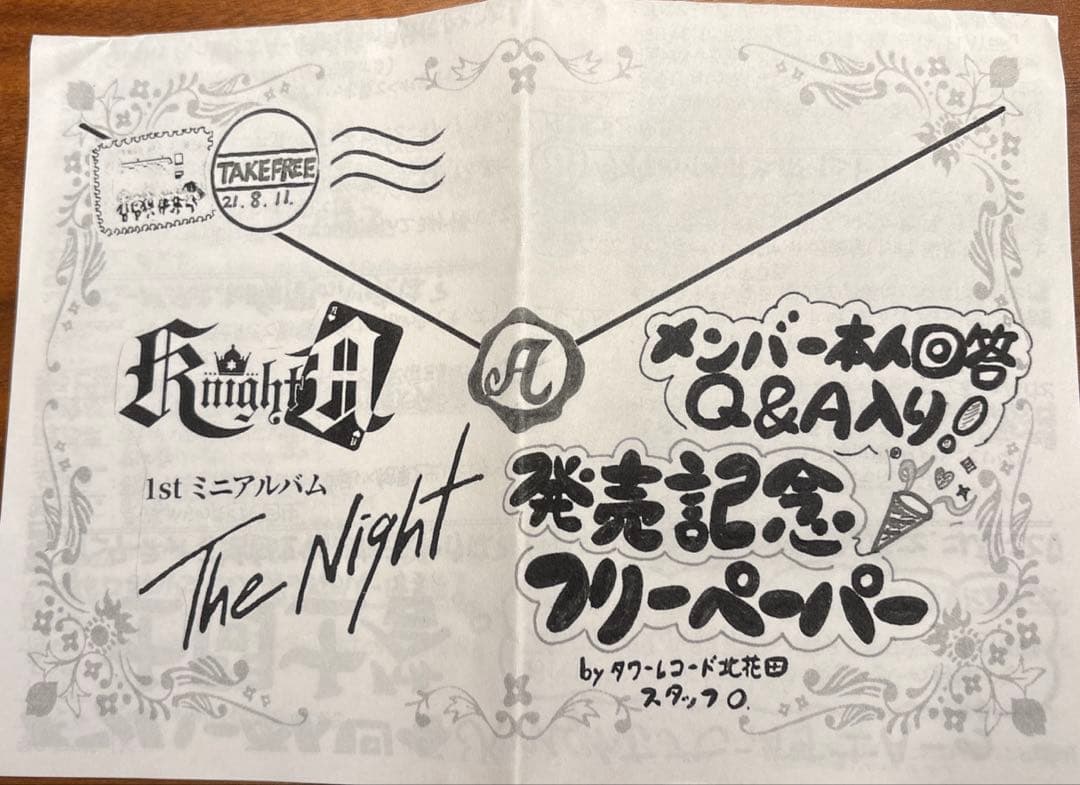 TAKE FREE
21.8.11.
Knight A
A
1st ミニアルバム
The Night
メンバー本人回答
Q&A入り!
発売記念
フリーペーパー
by タワーレコード北花田
スタッフO.